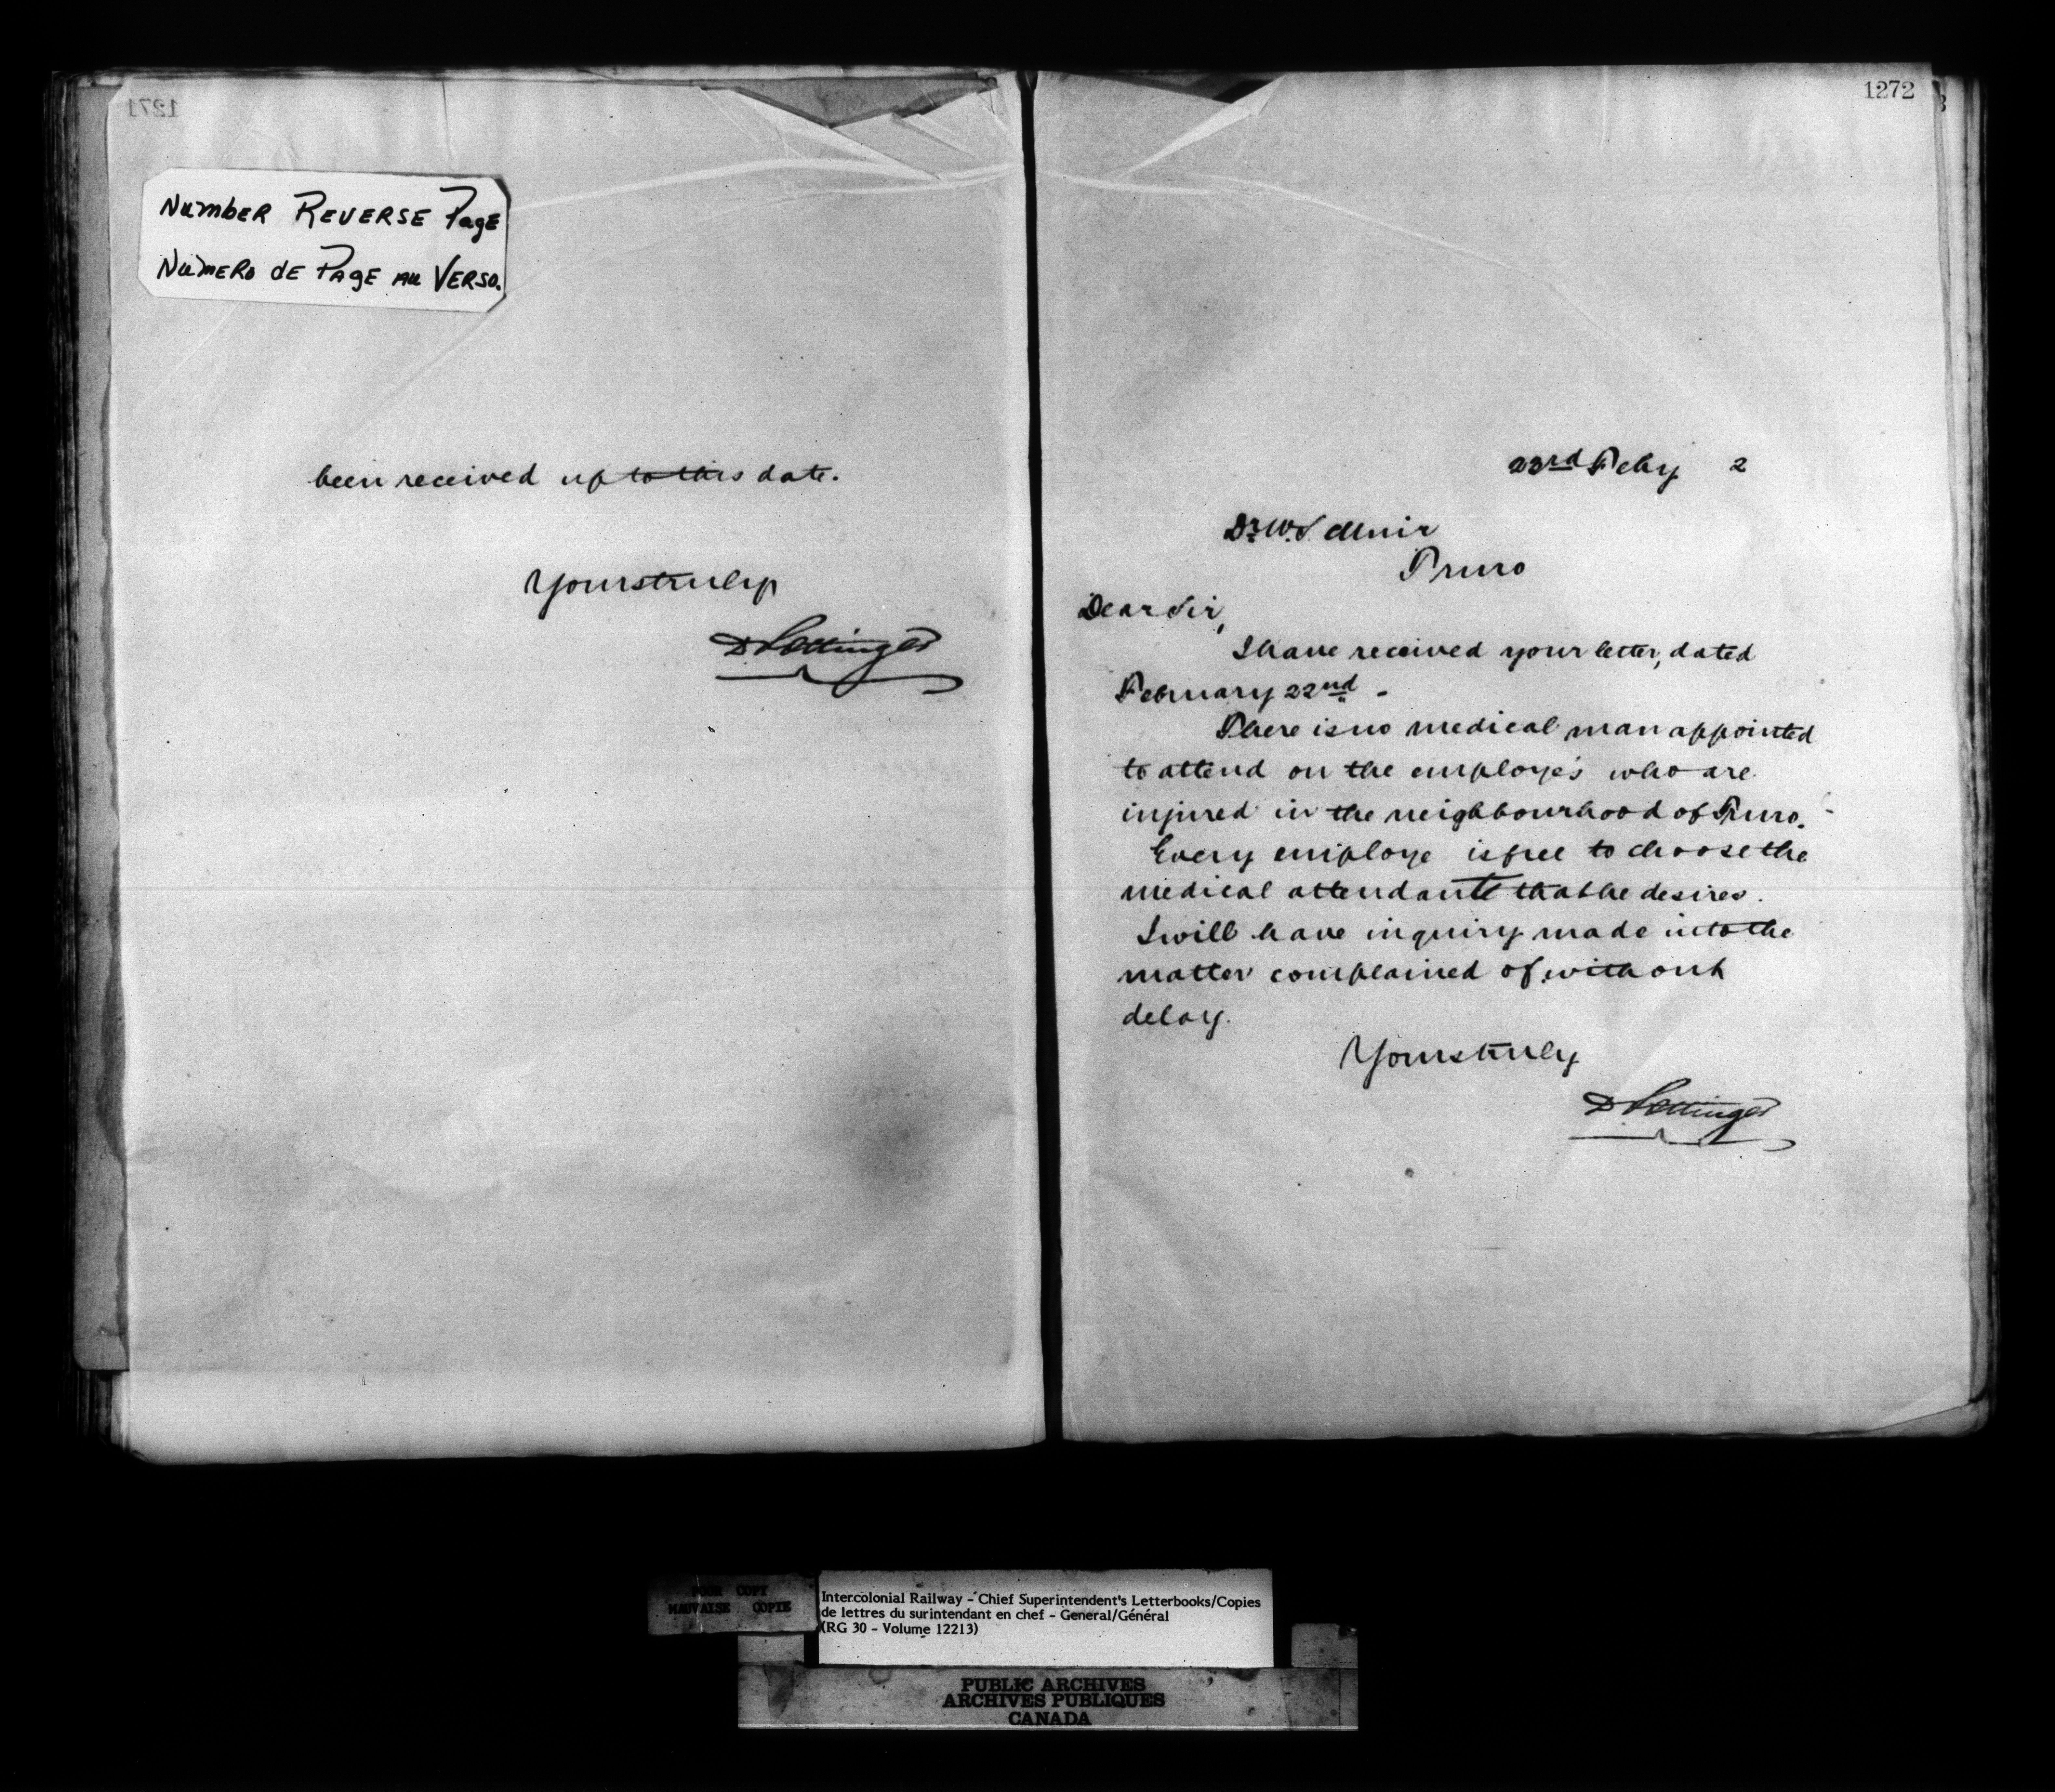 1271
NUMBER REVERSE PAGE
NUMERO DE PAGE AU VERSO.
been received up to this date.
Yours truly
D Pottinger
1272
23rd Feby 2
Dr. W. S. Muir
Truro
Dear Sir,
I have received your letter, dated
February 22nd -
There is no medical man appointed
to attend on the employe's who are
injured in the neighbourhood of Truro.
Every employe is free to choose the
medical attendant that he desires.
I will have inquiry made into the
matter complained of without
delay.
Yours truly
D Pottinger
POOR COPY
MAUVAISE COPIE
Intercolonial Railway - Chief Superintendent's Letterbooks/Copies
de lettres du surintendant en chef - General/Général
(RG 30 - Volume 12213)
PUBLIC ARCHIVES
ARCHIVES PUBLIQUES
CANADA